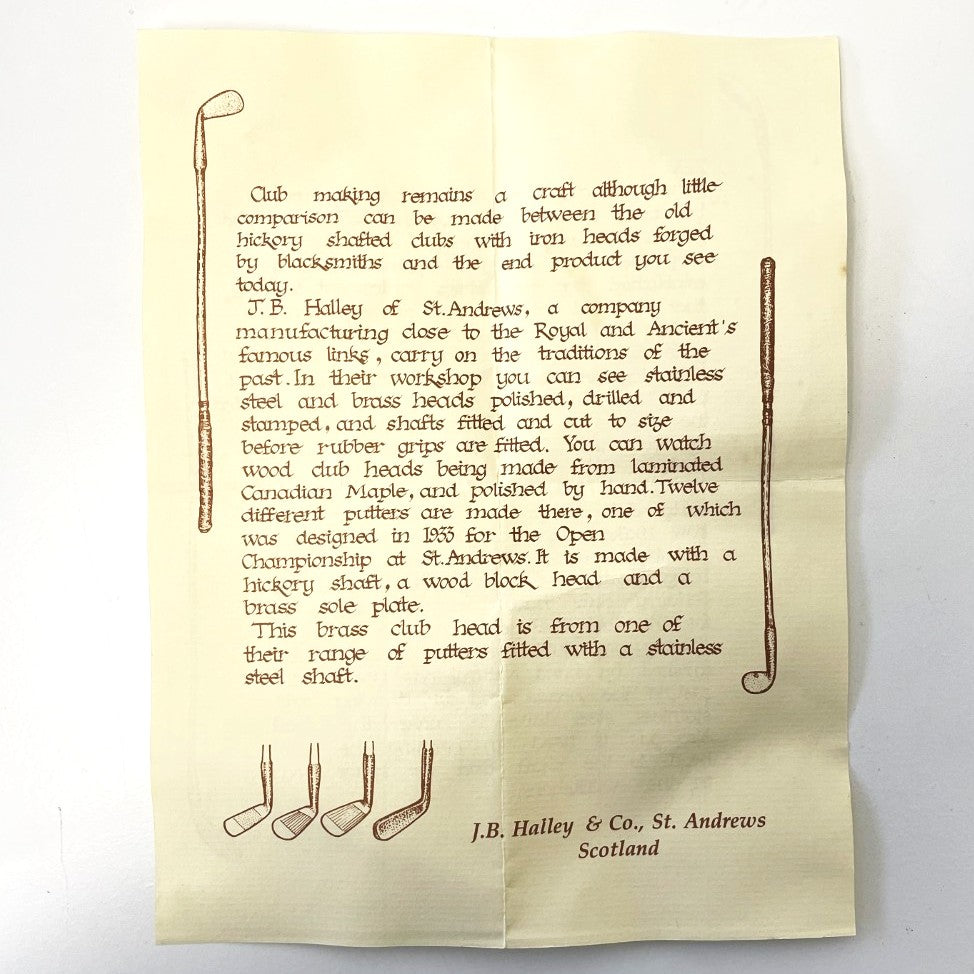 Club making remains a craft although little
comparison can be made between the old
hickory shafted clubs with iron heads forged
by blacksmiths and the end product you see
today.
J.B. Halley of St.Andrews, a company
manufacturing close to the Royal and Ancient's
famous links, carry on the traditions of the
past. In their workshop you can see stainless
steel and brass heads polished, drilled and
stamped, and shafts fitted and cut to size
before rubber grips are fitted. You can watch
wood club heads being made from laminated
Canadian Maple, and polished by hand. Twelve
different putters are made there, one of which
was designed in 1933 for the Open
Championship at St.Andrews. It is made with a
hickory shaft, a wood block head and a
brass sole plate.
This brass club head is from one of
their range of putters fitted with a stainless
steel shaft.
J.B. Halley & Co., St. Andrews
Scotland